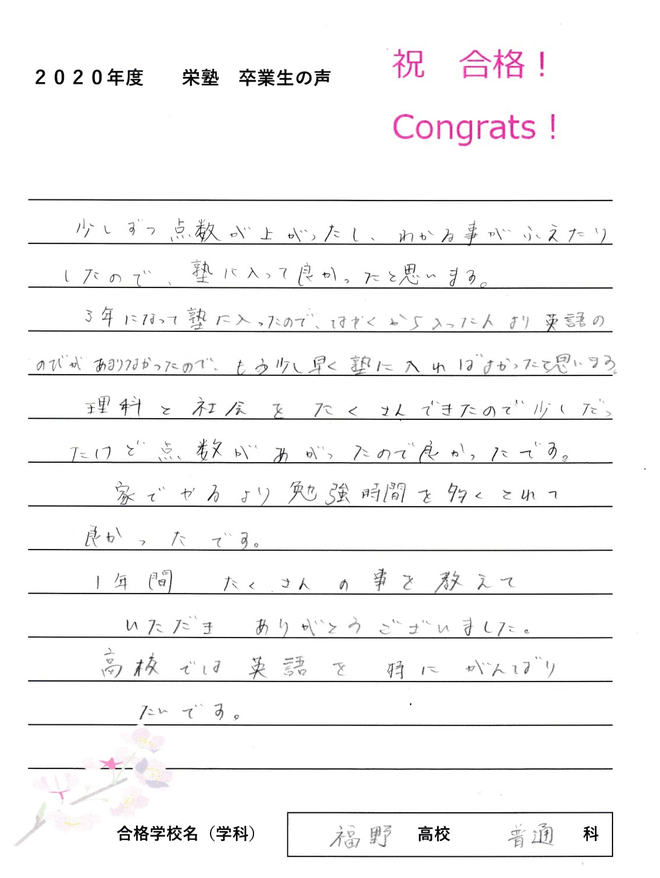 2020年度 栄塾 卒業生の声
祝 合格！
Congrats！
少しずつ点数が上がったし、わかる事がふえたり
したので、塾に入って良かったと思います。
3年になって塾に入ったので、はやくから入った人より英語の
のびがあまりなかったので、もう少し早く塾に入ればよかったと思います。
理科と社会をたくさんできたので少しだっ
たけど点数があがったので良かったです。
家でやるより勉強時間を多くとれて
良かったです。
1年間 たくさんの事を教えて
いただき ありがとうございました。
高校では英語を特にがんばり
たいです。
合格学校名（学科） 福野 高校 普通 科